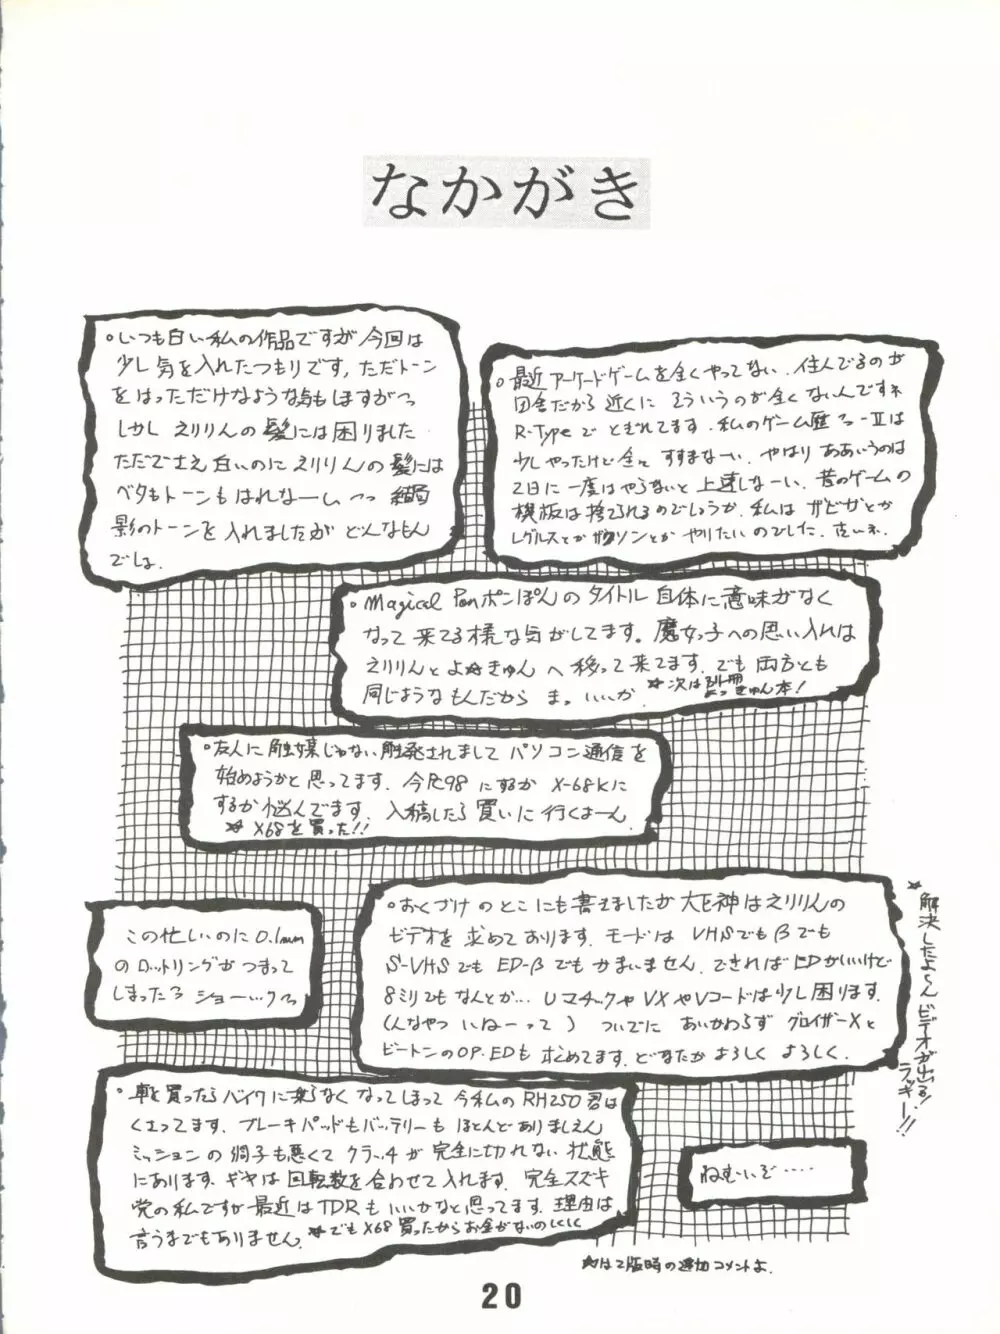 なかがき
○いつも白い私の作品ですが今回は
少し気を入れたつもりです。ただトーン
をはっただけなような気もしますがつ
しかしえりりんの髪には困りました
ただでさえ白いのにえりりんの髪には
ベタもトーンもはれなーい つつ 結局
影のトーンを入れましたがどんなもん
でしょ
○最近アーケードゲームを全くやってない。住んでるのが
田舎だから近くにそういうのが全くないんですネ
R-Typeでとぎれてます。私のゲーム歴つ-IIは
少しやったけど全ゝすすまなーい。やはりああいうのは
2日に一度はやらないと上達しなーい。昔のゲームの
基板は捨てられるのでしょうか。私はザビガとか
レグルスとかザクソンとかやりたいのでした。古いネ.
○Magical Ponポンぽんのタイトル自体に意味がなく
なって来てる様な気がしてます。魔女っ子への思い入れは
えりりんとよ☆きゅんへ移って来てます。でも両方とも
同じようなもんだから ま。いいか
★次は別冊よっきゅん本!
○友人に触媒じゃない触発されましてパソコン通信を
始めようかと思ってます。今尺98にするかX-68Kに
するか悩んでます。入稿したら買いに行くよーん.
★X68を買った!!
○おくづけのとこにも書きましたが大巨神はえりりんの
ビデオを求めております。モードはVHSでもβでも
S-VHSでもED-βでもかまいません。できればEDがいいけど
8ミリでもなんとか… UマチックやVXやVコードは少し困ります。
(んなやつ いねーって) ついでにあいかわらずグロイザーXと
ビートンのOP.EDも求めてます。どなたかよろしくよろしく.
★解決したよ〜ん ビデオが出る!ラッキー!!
この忙しいのに0.1mm
のロットリングがつまって
しまったぅ ショーックつ
○車を買ったらバイクに乗らなくなってしまって今私のRH250君は
くさってます。ブレーキパッドもバッテリーもほとんどありましぇん
ミッションの調子も悪くてクラッチが完全に切れない状態
にあります。ギヤは回転数を合わせて入れます。完全スズキ
党の私ですが最近はTDRもいいかなと思ってます。理由は
言うまでもありません。
★でもX68買ったからお金がないのしくしく
ねむいぞ……
★は2版時の追加コメントよ.
20